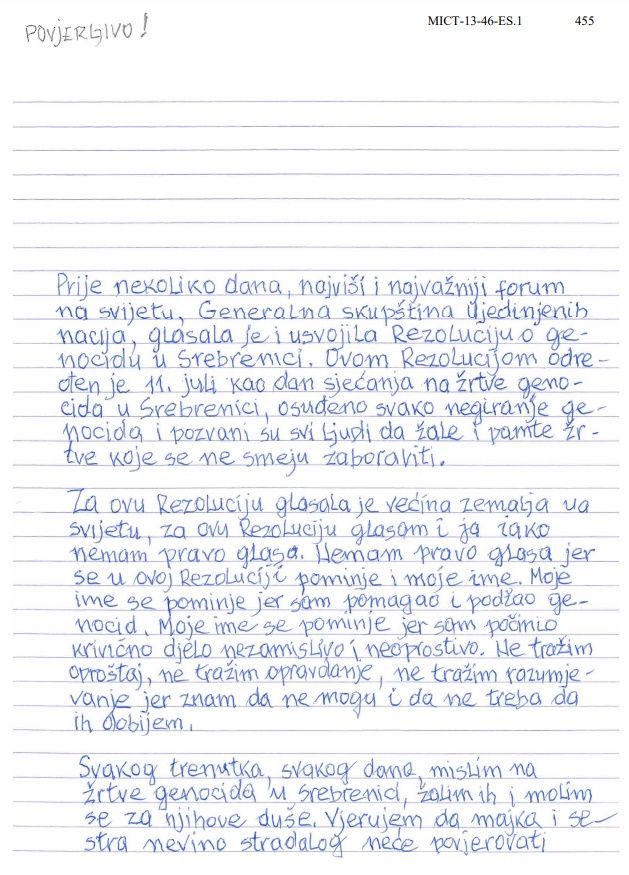 POVJERLJIVO!
MICT-13-46-ES.1 455
Prije nekoliko dana, najviši i najvažniji forum
na svijetu, Generalna skupština Ujedinjenih
nacija, glasala je i usvojila Rezoluciju o ge-
nocidu u Srebrenici. Ovom Rezolucijom odre-
đen je 11. juli kao dan sjećanja na žrtve geno-
cida u Srebrenici, osuđeno svako negiranje ge-
nocida i pozvani su svi ljudi da žale i pamte žr-
tve koje se ne smeju zaboraviti.
Za ovu Rezoluciju glasala je većina zemalja na
svijetu, za ovu Rezoluciju glasam i ja iako
nemam pravo glasa. Nemam pravo glasa jer
se u ovoj Rezoluciji pominje i moje ime. Moje
ime se pominje jer sam pomagao i podžao ge-
nocid. Moje ime se pominje jer sam počinio
krivično djelo nezamislivo i neoprostivo. Ne tražim
oproštaj, ne tražim opravdanje, ne tražim razumje-
vanje jer znam da ne mogu i da ne treba da
ih dobijem.
Svakog trenutka, svakog dana, mislim na
žrtve genocida u Srebrenici, žalim ih i molim
se za njihove duše. Vjerujem da majka i se-
stra nevino stradalog neće povjerovati